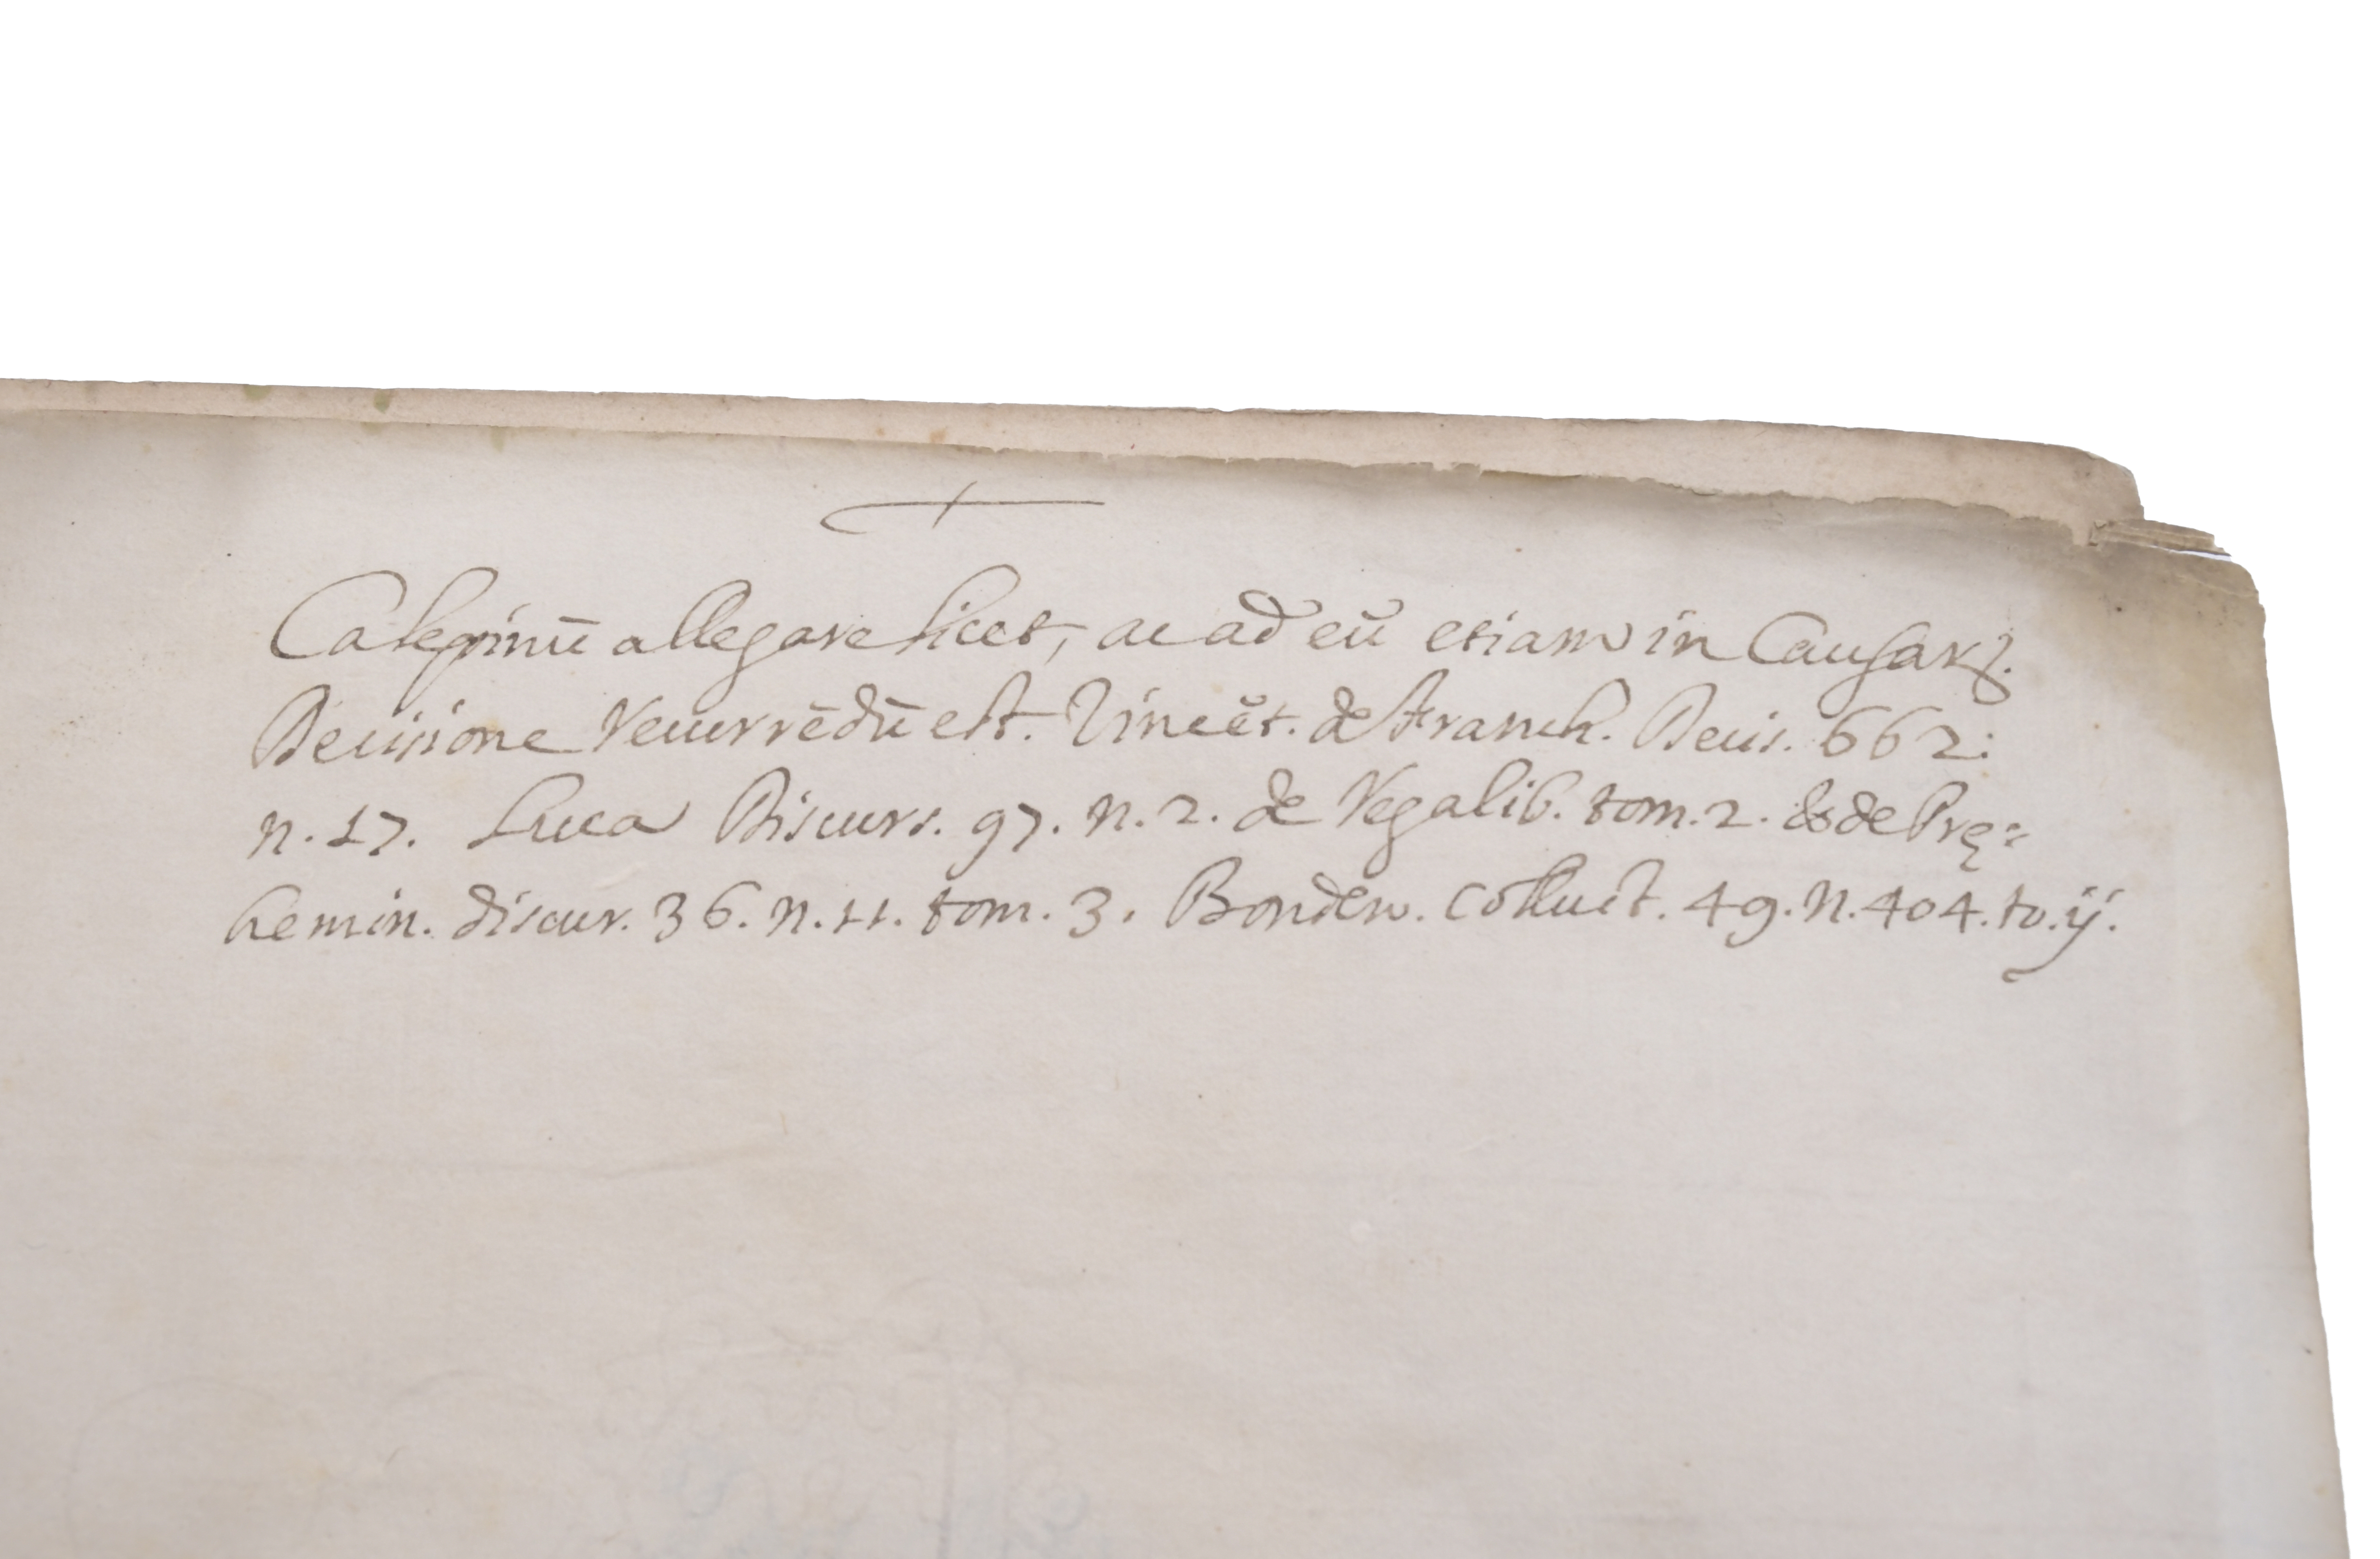 Calepinū allegare licet, ac ad eū etiam in Causarꝝ.
Decisione recurrēdū est. Vincēt. de Franch. Decis. 662:
n. 17. Luca Discurs. 97. n. 2. de Regalib. tom. 2. & de Prę=
hemin. discur. 36. n. 11. tom. 3. Bonden. Colluct. 49. n. 404. to. ij.